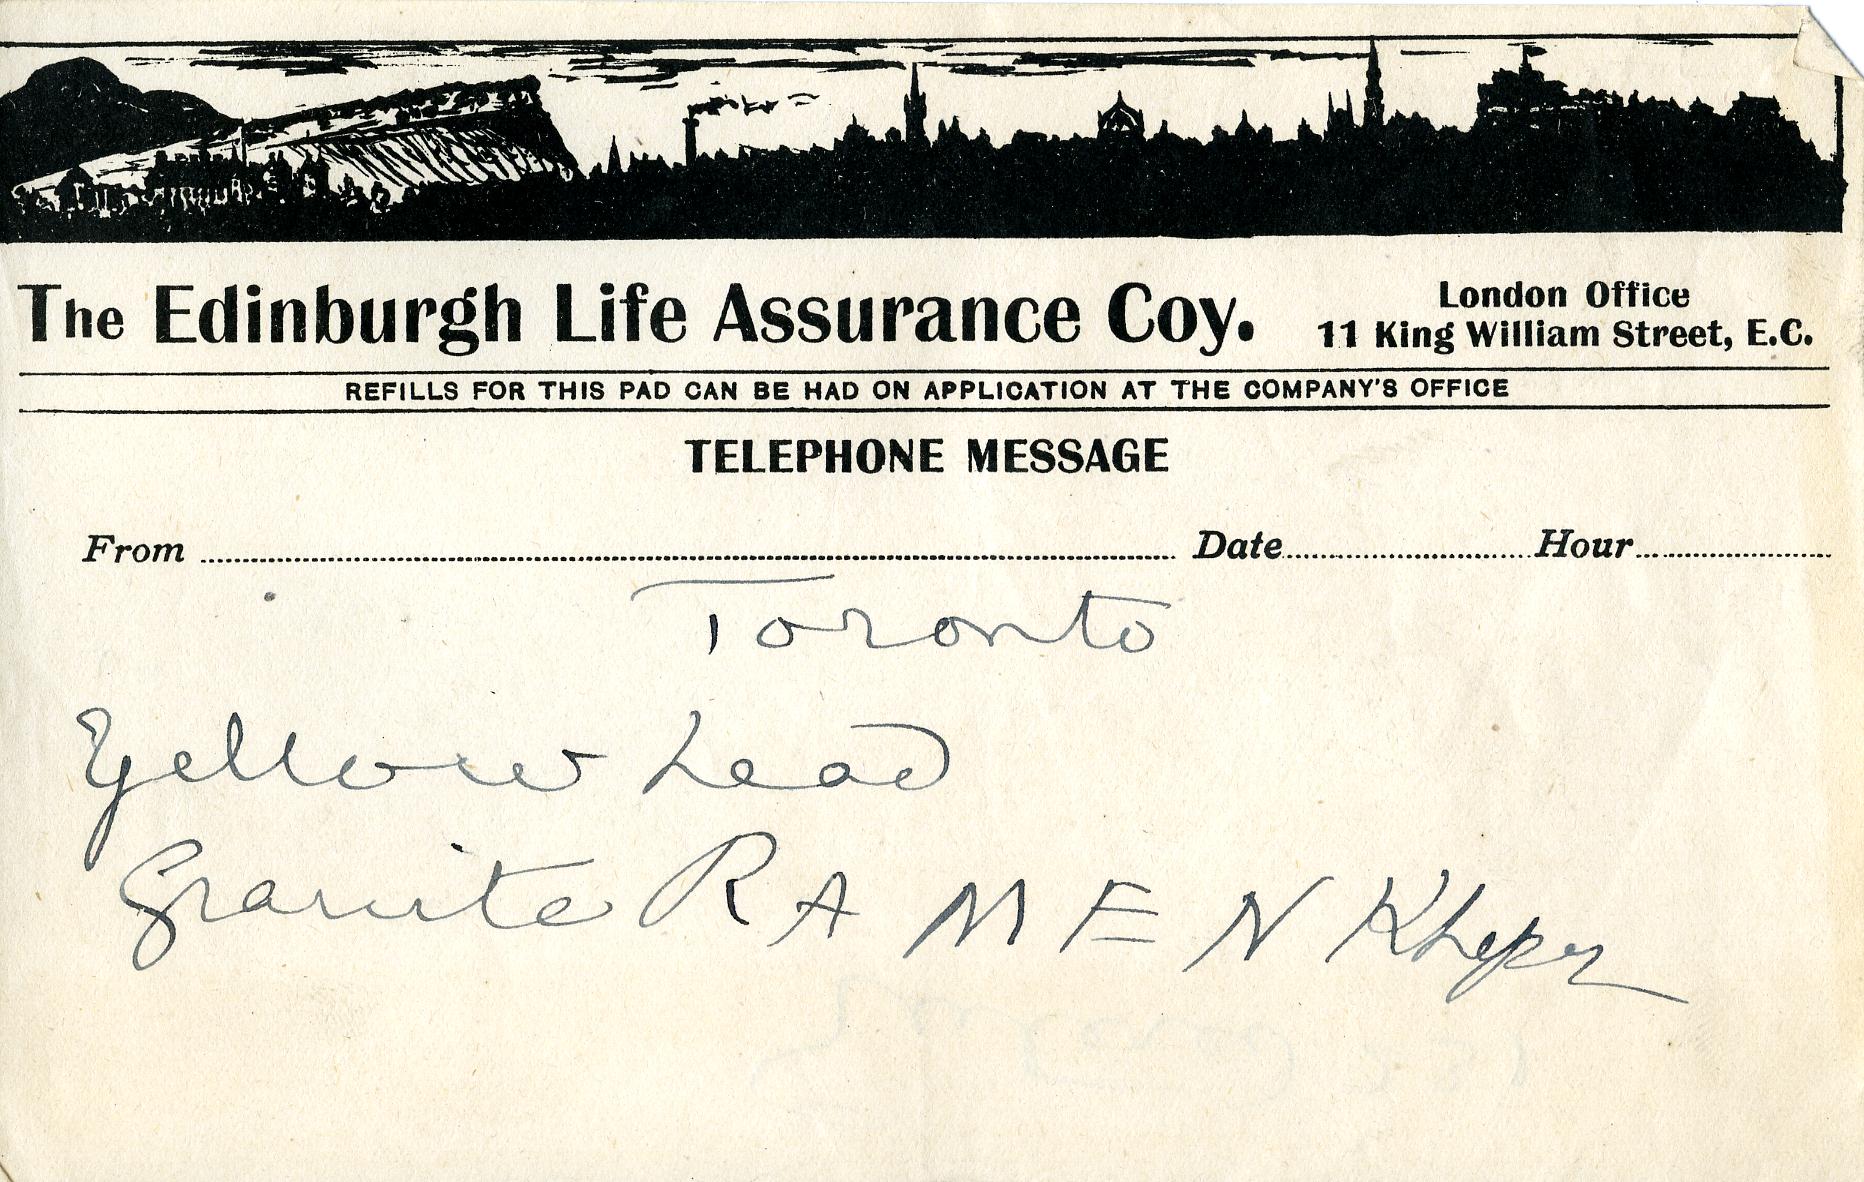 The Edinburgh Life Assurance Coy.
London Office
11 King William Street, E.C.
REFILLS FOR THIS PAD CAN BE HAD ON APPLICATION AT THE COMPANY'S OFFICE
TELEPHONE MESSAGE
From Date Hour
Toronto
Yellow Lead
Granite R A M E N